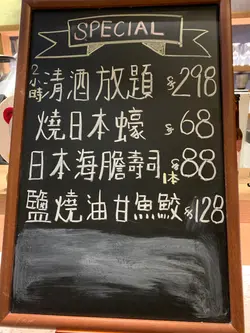 SPECIAL
2小時清酒放題 $298
燒日本蠔 $68
日本海膽壽司 1本 $88
鹽燒油甘魚鮫 $128